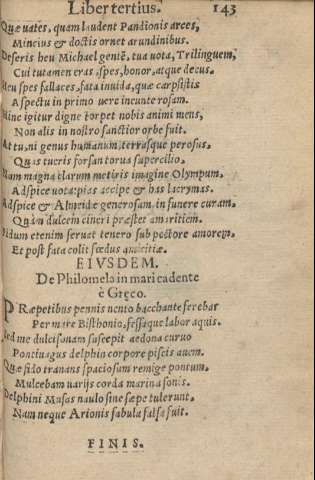 Liber tertius. 143
Quæ vates, quam laudent Pandionis arces,
Mincius & doctis ornet arundinibus.
Deseris heu Michael gentẽ, tua vota, Trilinguem,
Cui tutamen eras, spes, honor, atque decus.
Heu spes fallaces, fata invida, quæ carpsistis
Aspectu in primo vere incunte rosam.
Hinc igitur digne torpet nobis animi mens,
Non alis in nostro sanctior orbe fuit.
At tu, ni genus humanum, terrasque perosus,
Quas tueris forsan torua supercilio.
Nam magna clarum metiris imagine Olympum,
Adspice vota: pias accipe & has lacrymas.
Adspice & Almeidæ generosam, in funere curam,
Quàm dulcem cineri præstet amicitiem.
Nidum etenim seruat tenero sub pectore amorem,
Et post fata colit fœdus amicitiæ.
EIVSDEM.
De Philomela in mari cadente
è Gręco.
PRæpetibus pennis uento bacchante ferebar
Per mare Bisthonio, fessaque labor aquis.
Sed me dulcisonam suscepit aedona curuo
Pontiuagus delphin corpore piscis auem.
Quæ fido tranans spaciosum remige pontum,
Mulcebam uarijs corda marina sonis.
Delphini Musas naulo sine sæpe tulerunt,
Nam neque Arionis fabula falsa fuit.
FINIS.